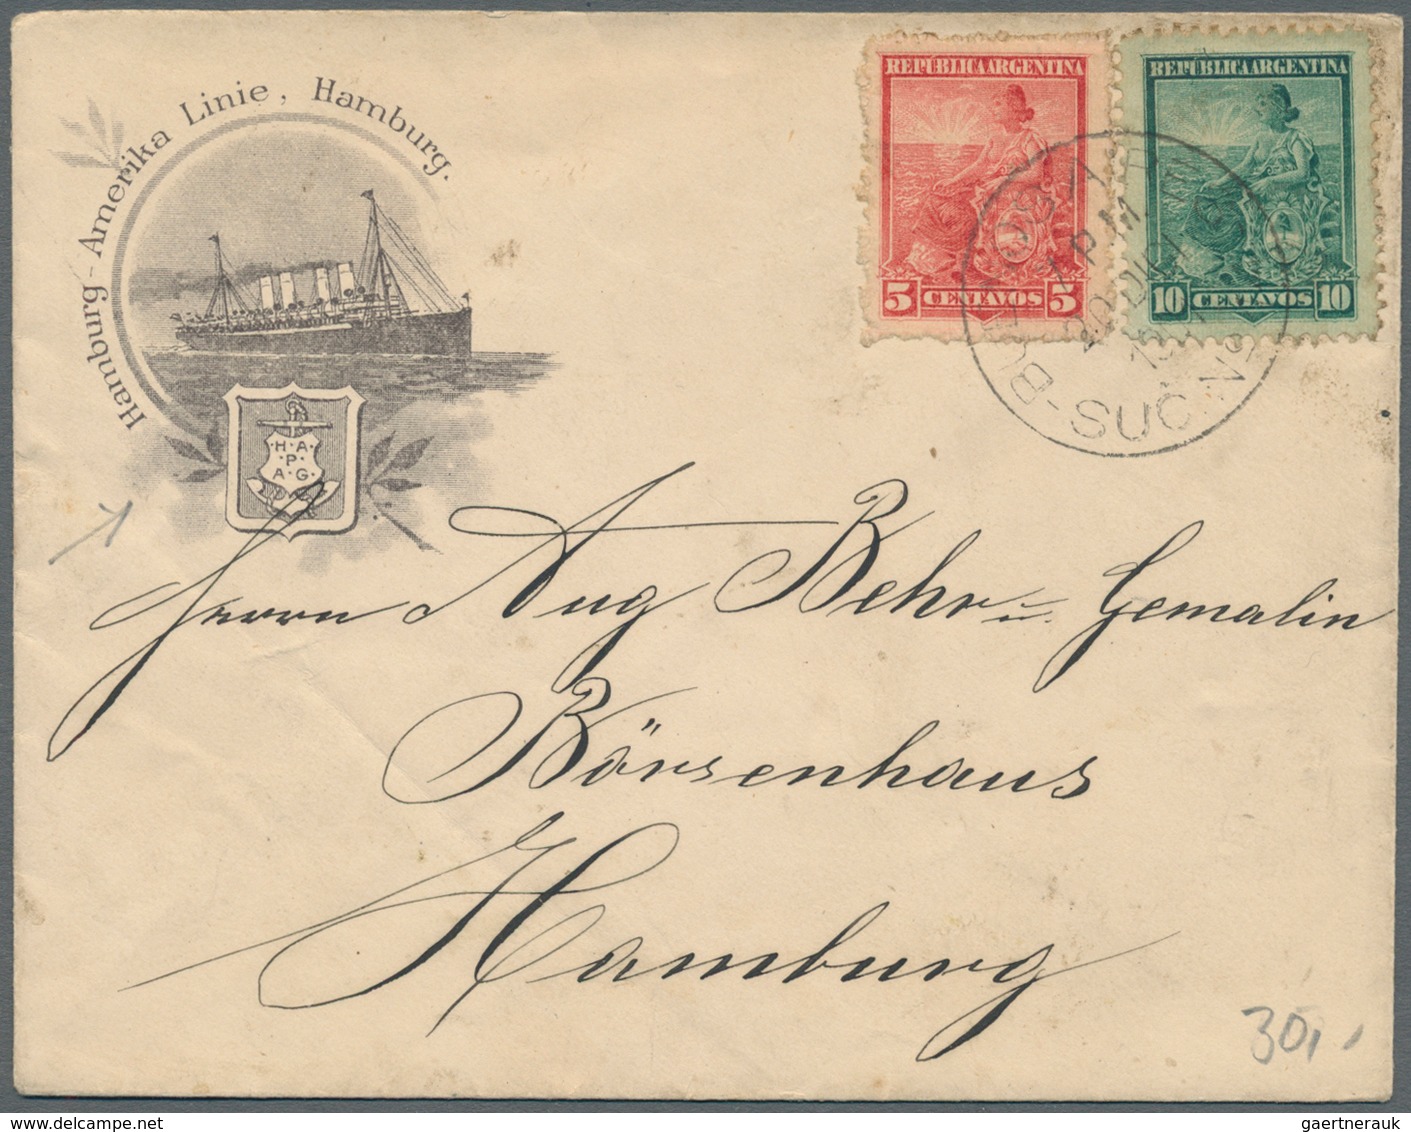 Hamburg-Amerika Linie, Hamburg.
H.A.
P.
A.G.
REPÚBLICA ARGENTINA
5 CENTAVOS 5
REPÚBLICA ARGENTINA
10 CENTAVOS 10
1 PM
20 DIC
SUC. N
Herrn Aug Behr u. Gemalin
Börsenhaus
Hamburg
30,
gaertnerauk